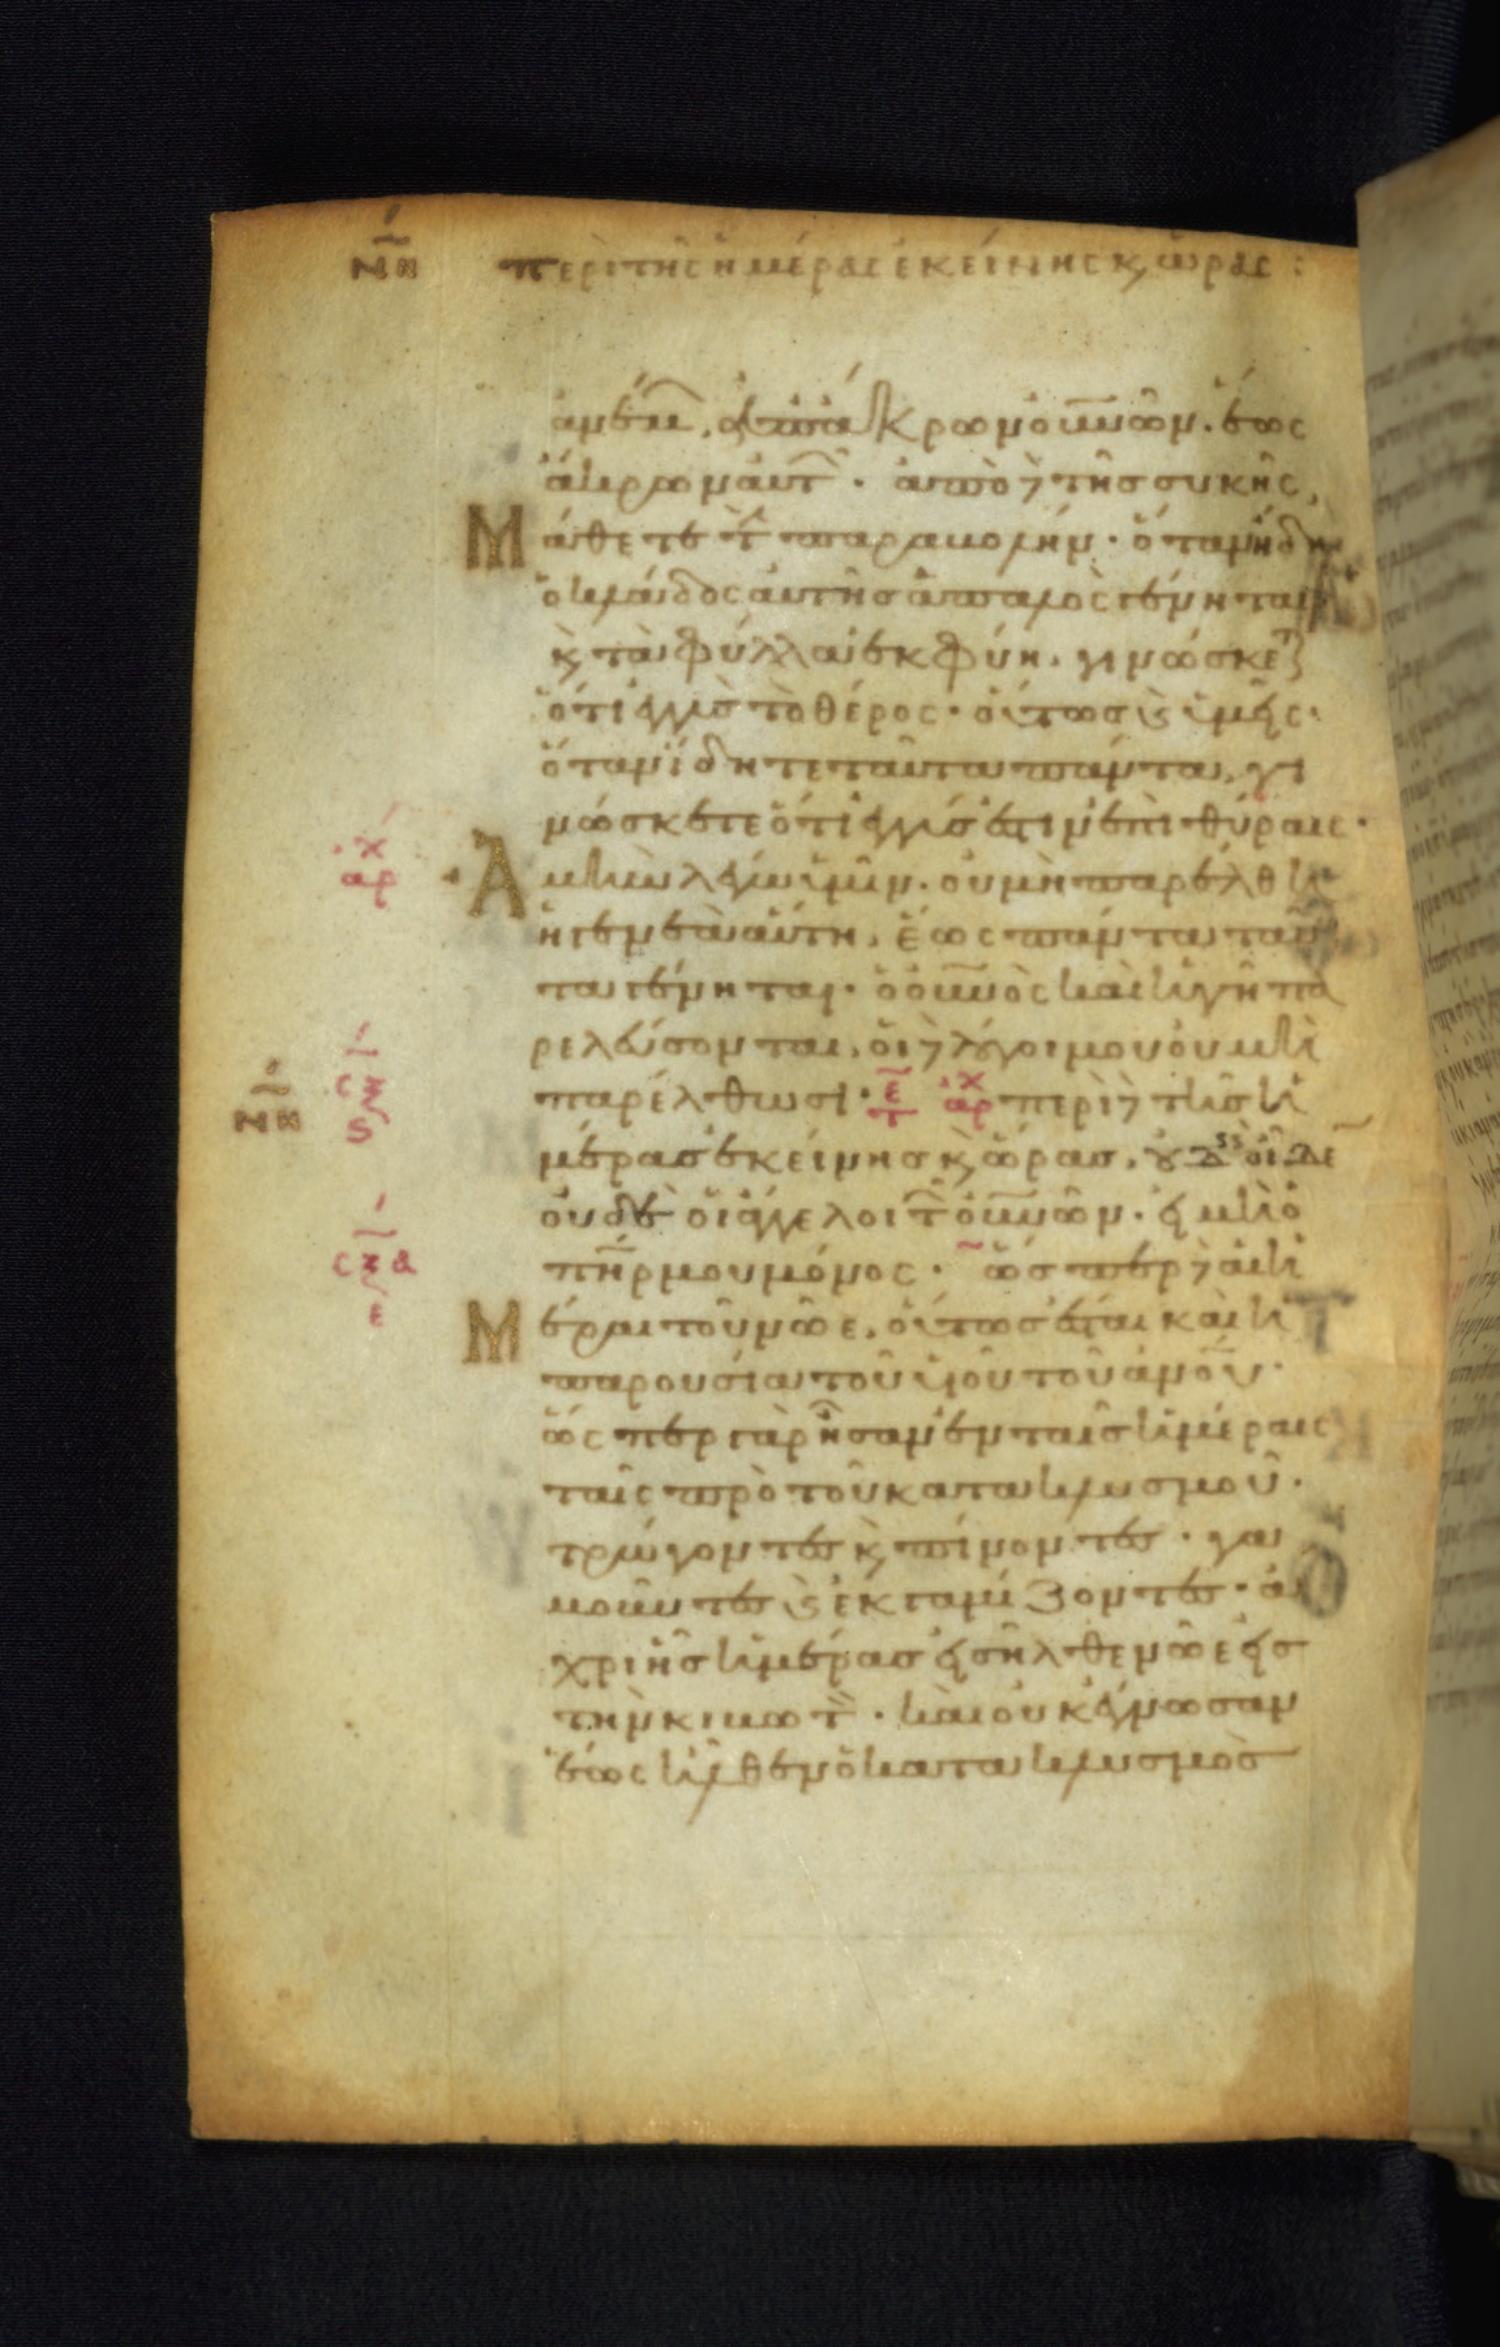 νη περὶ τῆς ἡμέρας ἐκείνης κ ὥρας :
ἀνέμ, ἀπ ἄκρων οὐνῶν. ἕως
ἄκρων αὐτ. ἀπὸ δὲ τῆς συκῆς,
Μάθετε τ παραβολήν. ὅταν ἤδη
ὁ κλάδος αὐτῆς ἁπαλὸς γένηται
κ τὰ φύλλα ἐκφύη. γινώσκετ
ὅτι ἐγγὺς τὸ θέρος. οὕτως κ ὑμεῖς.
ὅταν ἴδητε ταῦτα πάντα, γι
νώσκετε ὅτι ἐγγύς ἐστιν ἐπὶ θύραις.
αρχ Ἀμὴν λέγω ὑμῖν. οὐ μὴ παρέλθη
ἡ γενεὰ αὕτη, ἕως πάντα ταῦ
τα γένηται. ὁ οὐνὸς καὶ ἡ γῆ πα
ρελεύσονται, οἱ δὲ λόγοι μου οὐ μὴ
νη σξ ϛ παρέλθωσι. τε αρχ περὶ δὲ τῆς ἡ
μέρας ἐκείνης κ ὥρας, οὐδεὶς οἶδε
οὐδὲ οἱ ἄγγελοι τ οὐνῶν. εἰ μὴ ὁ
σξα ε πηρ μου μόνος. ὥσπερ δὲ αἱ ἡ
Μέραι τοῦ νῶε, οὕτως ἔσται καὶ ἡ
παρουσία τοῦ υἱοῦ τοῦ ἀνου.
ὥσπερ γὰρ ἦσαν ἐν ταῖς ἡμέραις
ταῖς πρὸ τοῦ κατακλυσμοῦ.
τρώγοντες κ πίνοντες. γα
μοῦντες κ ἐκγαμίζοντες. ἄ
χρι ἧς ἡμέρας εἰσῆλθε νῶε εἰς
τὴν κιβωτ. καὶ οὐκ ἔγνωσαν
ἕως ἦλθεν ὁ κατακλυσμὸς